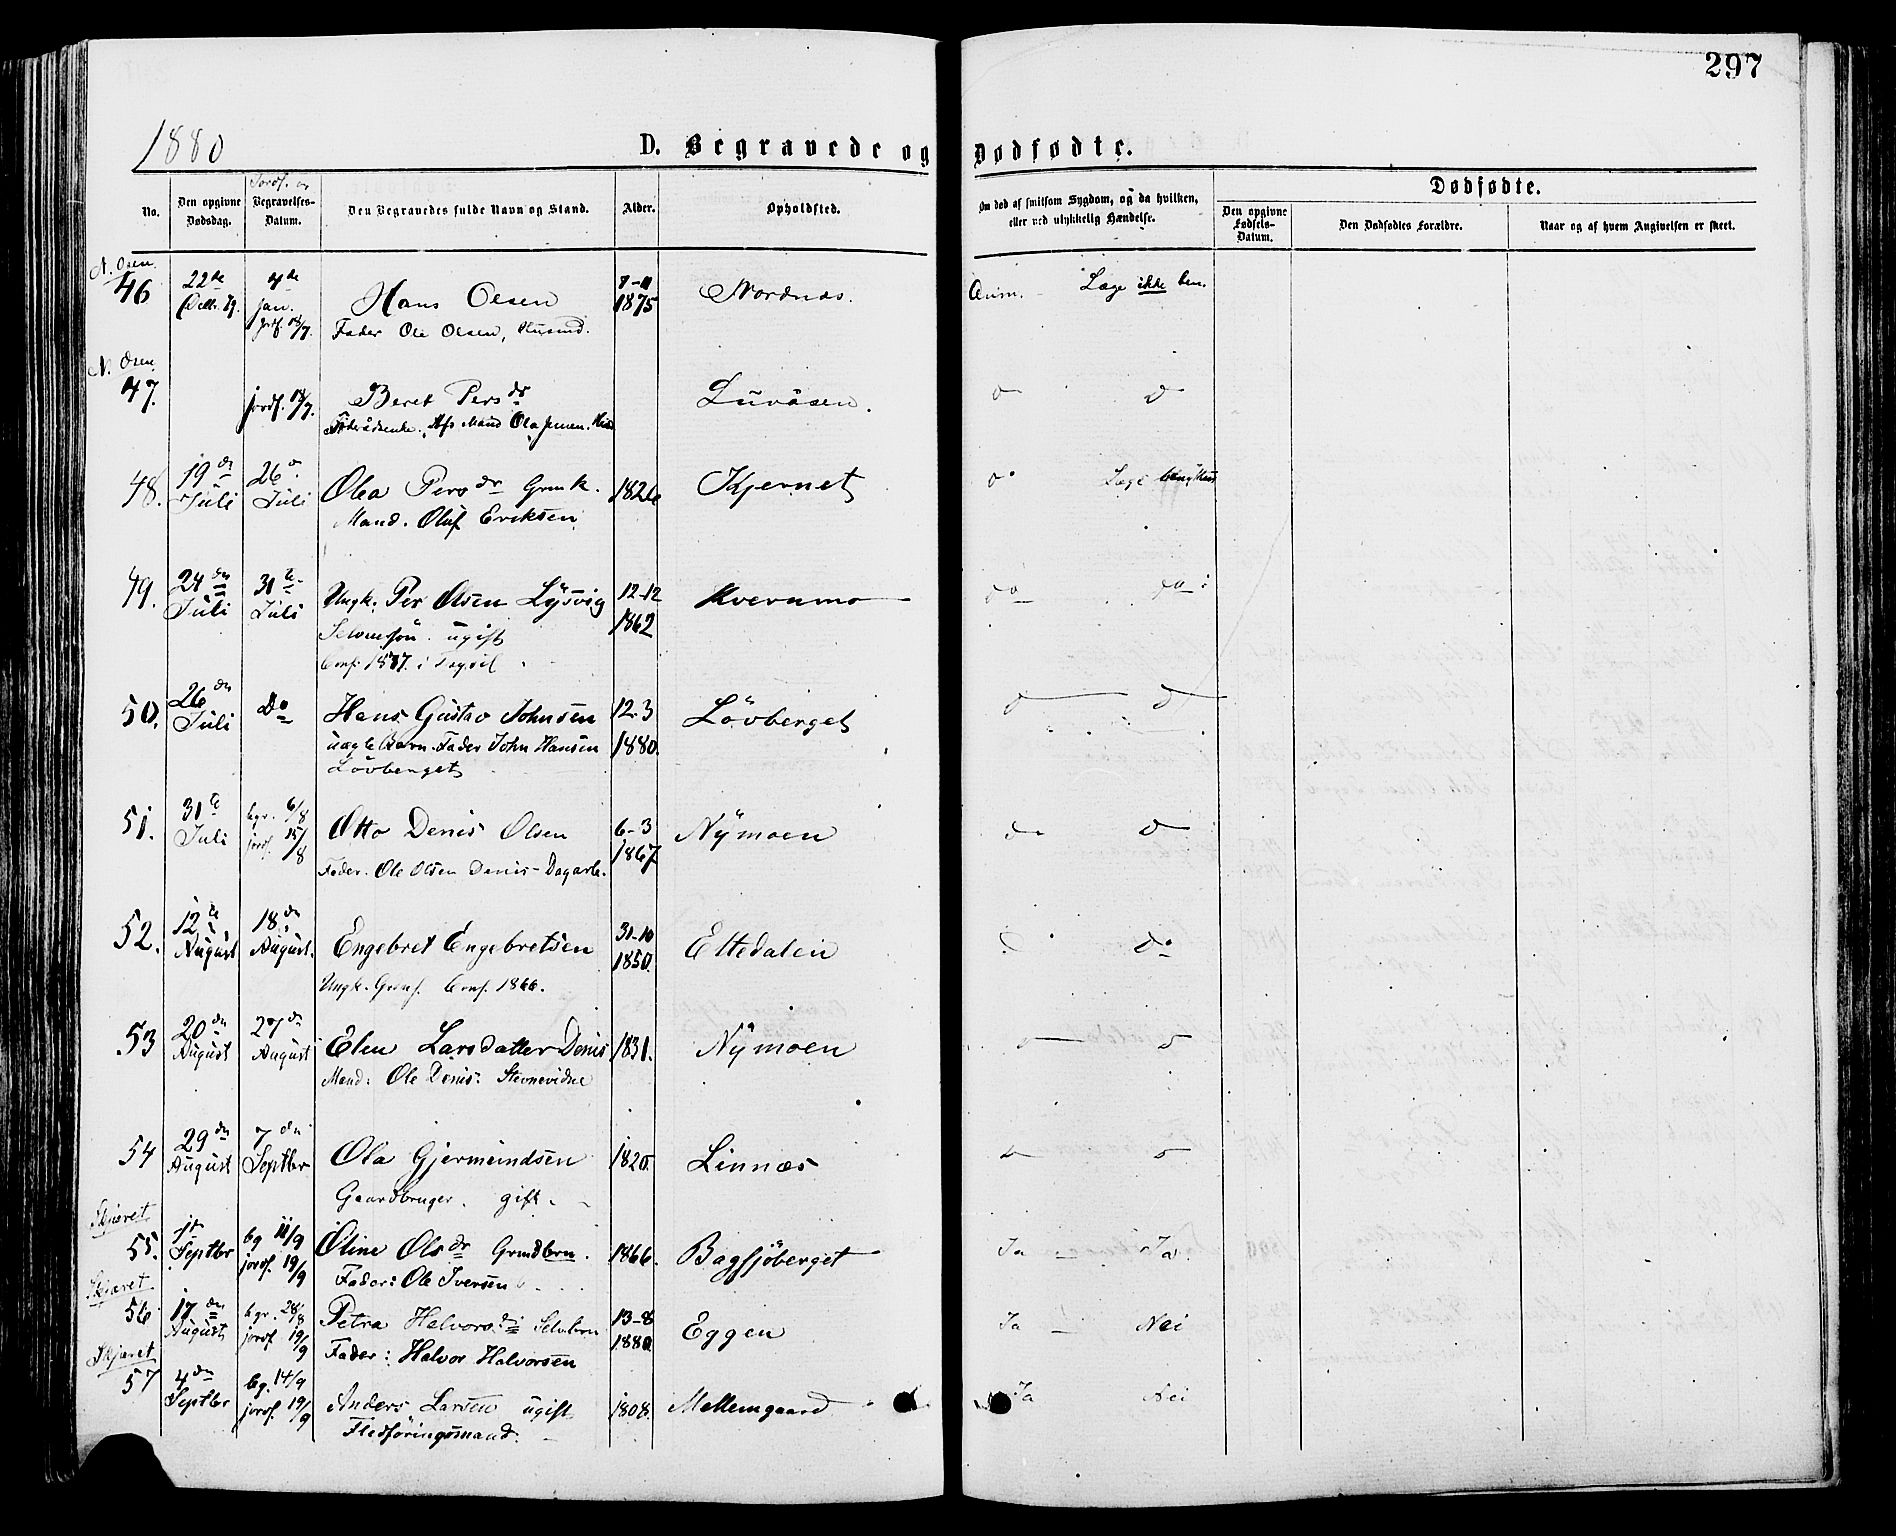 297
1880
D. Begravede og Dødfødte.
No.
Den opgivne Dødsdag.
Jordf. og
Begravelses-Datum.
Den Begravedes fulde Navn og Stand.
Alder.
Opholdsted.
Om død af smitsom Sygdom, og da hvilken, eller ved ulykkelig Hændelse.
Dødfødte.
Den opgivne Fødsels-Datum.
Den Dødfødtes Forældre.
Naar og af hvem Angivelsen er skeet.
N. Osen.
46 22de 4de Hans Olsen 1875 Nordnæs. Læge ikke ben.
Jan.
Fader Ole Olsen, Husmd.
N. Osen
47. jordf. 18/7. Beret Persdr Luråsen.
48. 19de Juli 26 Juli Olea Persdr Grmk. 1826 Kjernet Læge
Mand. Oluf Eriksen
49. 24de Juli 31te Juli Ungk. Per Olsen Lysvig 12-12 1862 Kvernmo do do
Selveiersön. ugift
Conf. 1877. i Trysil
50. 26de Juli Do Hans Gustav Johnsen 12-3 1880. Lövberget
uægte Barn. Fader John Hansen
Lövberget
51. 31te Juli bgr. 6/8 jordf. 15/8 Otto Denis Olsen 6-3 1867 Nymoen
Fader. Ole Olsen Denis - Dagarb.
52. 12te August 18de August. Engebret Engebretsen 31-10 1850. Eltedalen do
Ungk. Conf. 1866.
53 20de August 27de August Elen Larsdatter Denis 1831. Nymoen
Mand: Ole Denis: Stevnevidne
54 29de August 7de Septbr Ola Gjermundsen 1820. Linnæs
Gaardbruger. gift.
Skjæret
55. 1st Septbr bg 11/9 jordf. 19/9 Oline Olsdr Grmdbrn. 1866. Bagsjöberget Ja - Ja
Fader: Ole Iversen
Skjæret
56 17de August bgr. 28/8 jordf. 19/9 Petra Halvorsdr Selvbrn 13-8 1880 Eggen Ja - Nei
Fader: Halvor Halvorsen
Skjæret
57 4de Septbr bg. 14/9 jordf. 19/9 Anders Larsen ugift 1808. Mellemgaard Ja Nei
Fledföringsmand.